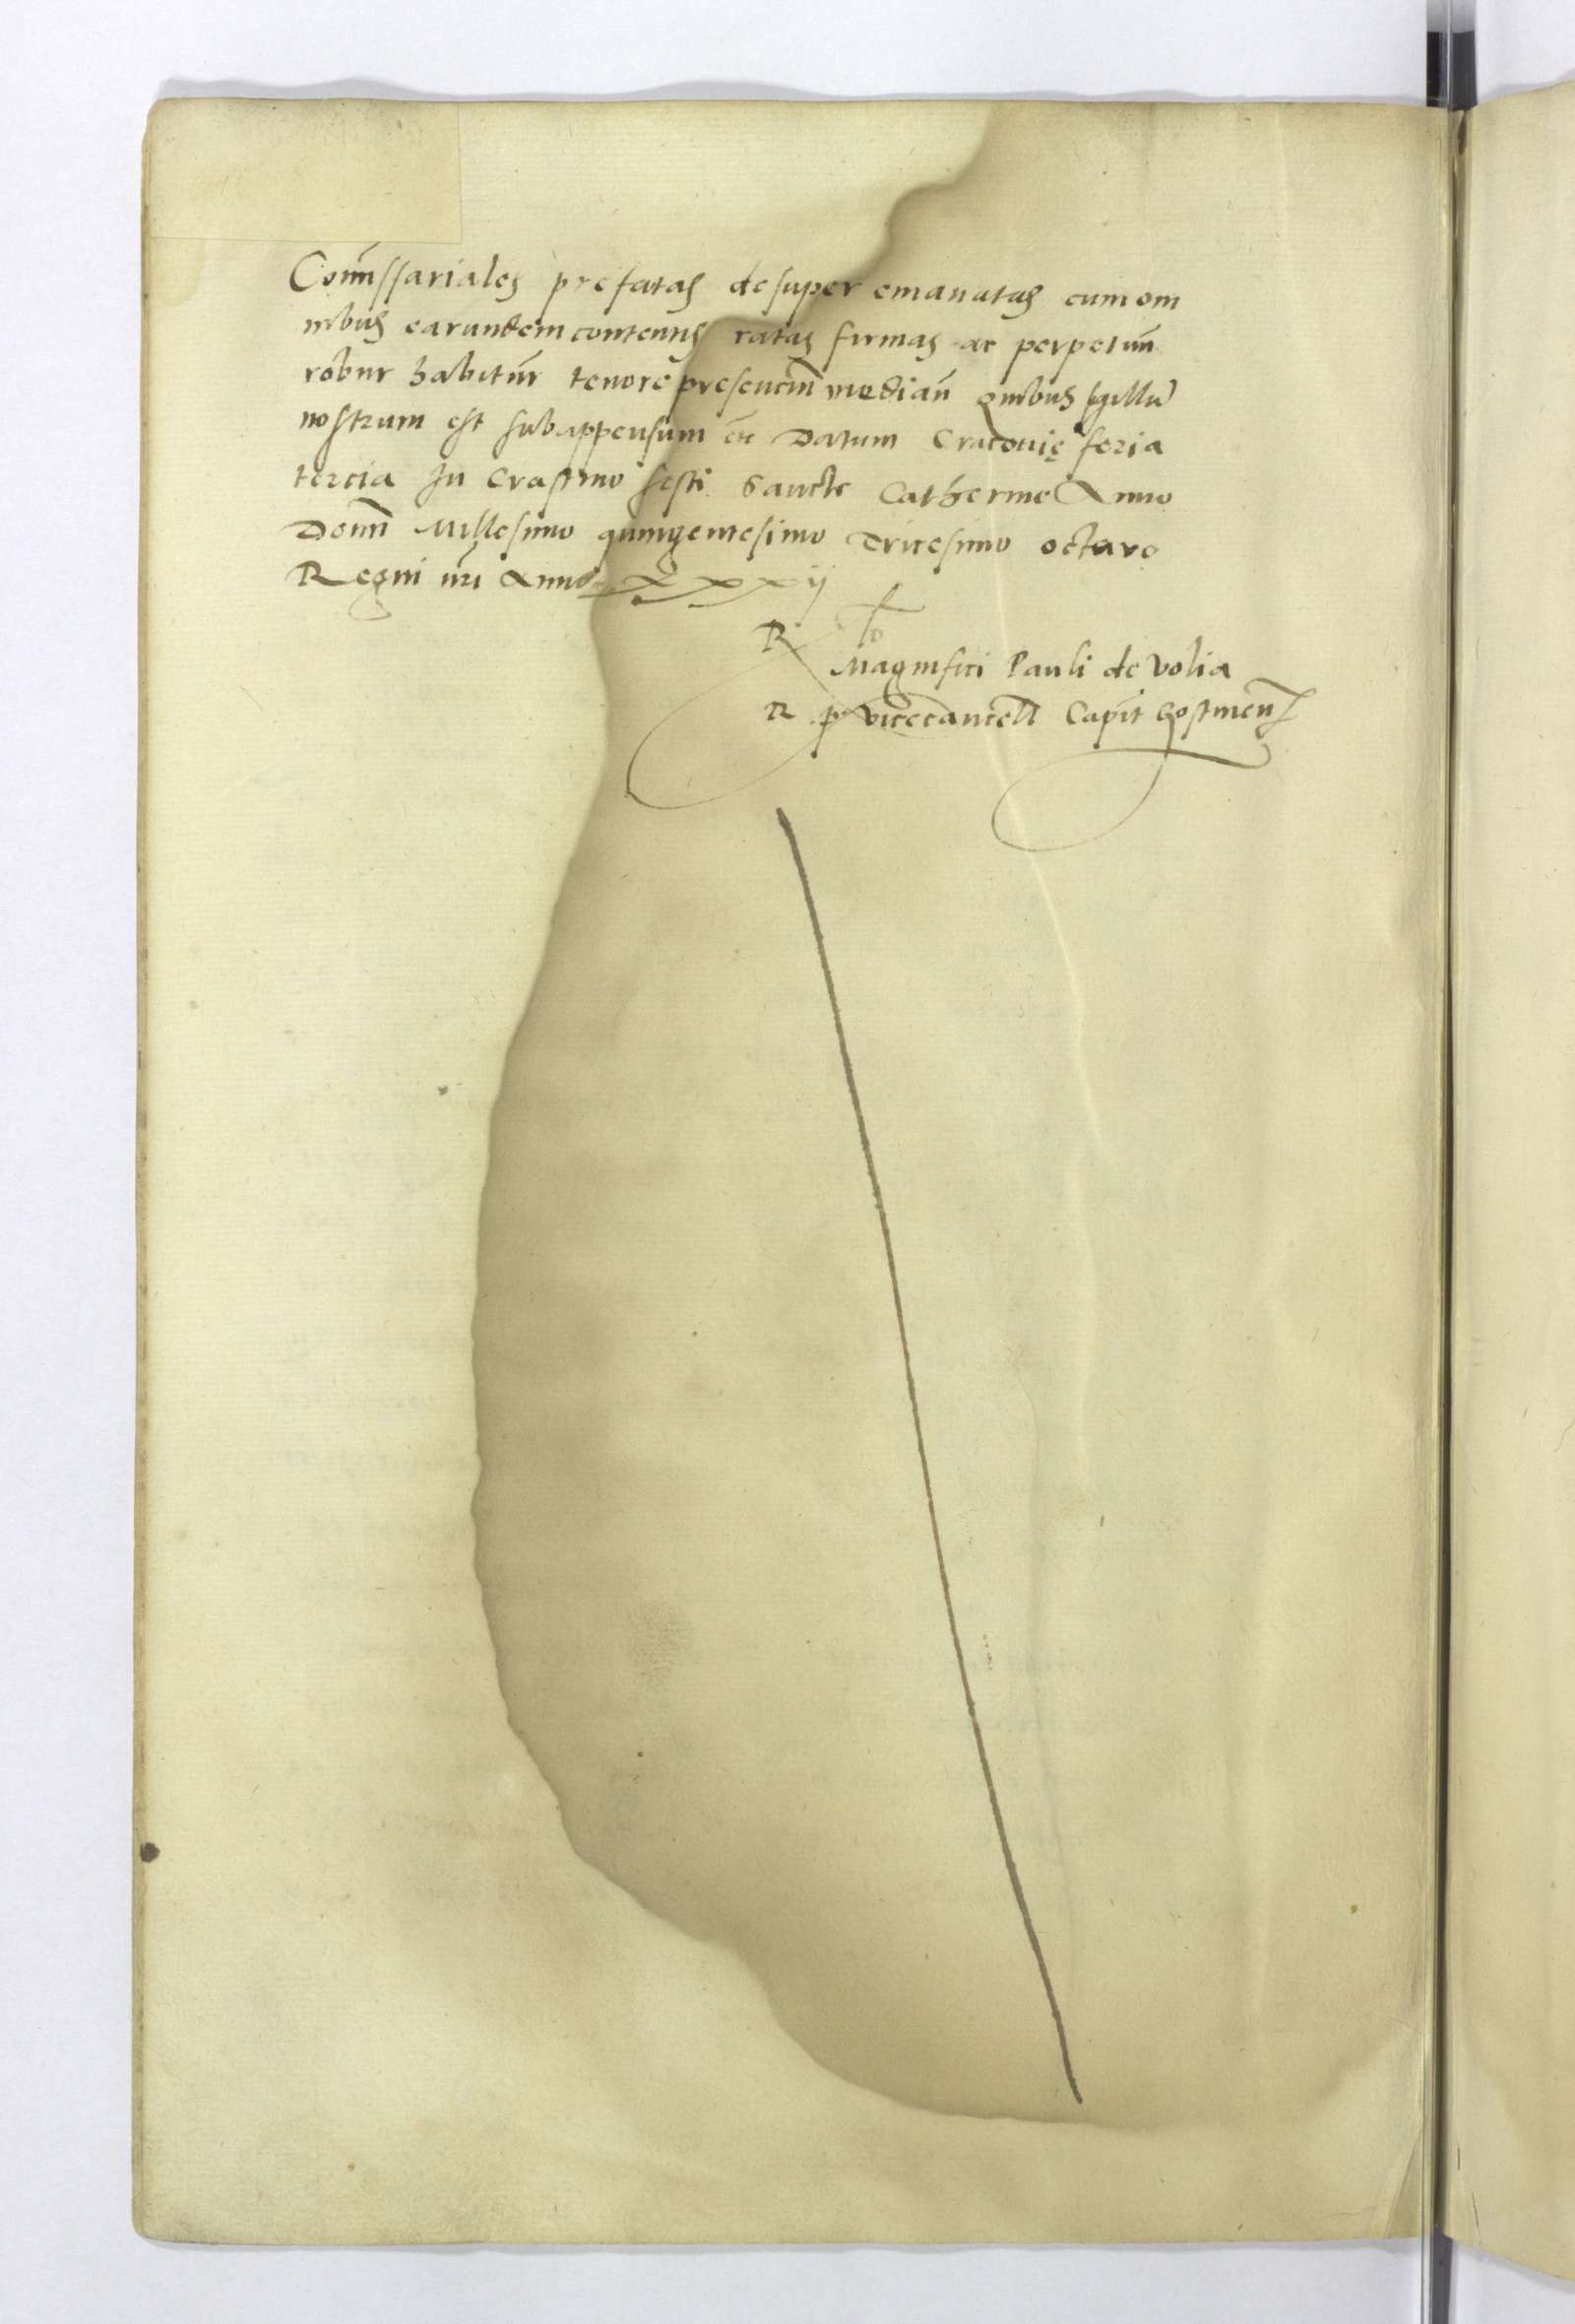 Com̄issariales prefatas desuper emanatas cum om
nibus earundem contentis ratas firmas ac perpetuū
robur habitur̄ tenore presenciū median̄ quibus sigillū
nostrum est subappensum etc̄ Datum Cracovię feria
tercia In Crastino festi Sancte Catherine Anno
Domī Millesimo quingentesimo Tricesimo octavo
Regni nr̄i Anno xxxij
R
Magnifici Pauli de Volia
R p vicecancell Capit̄ Gostinen̄